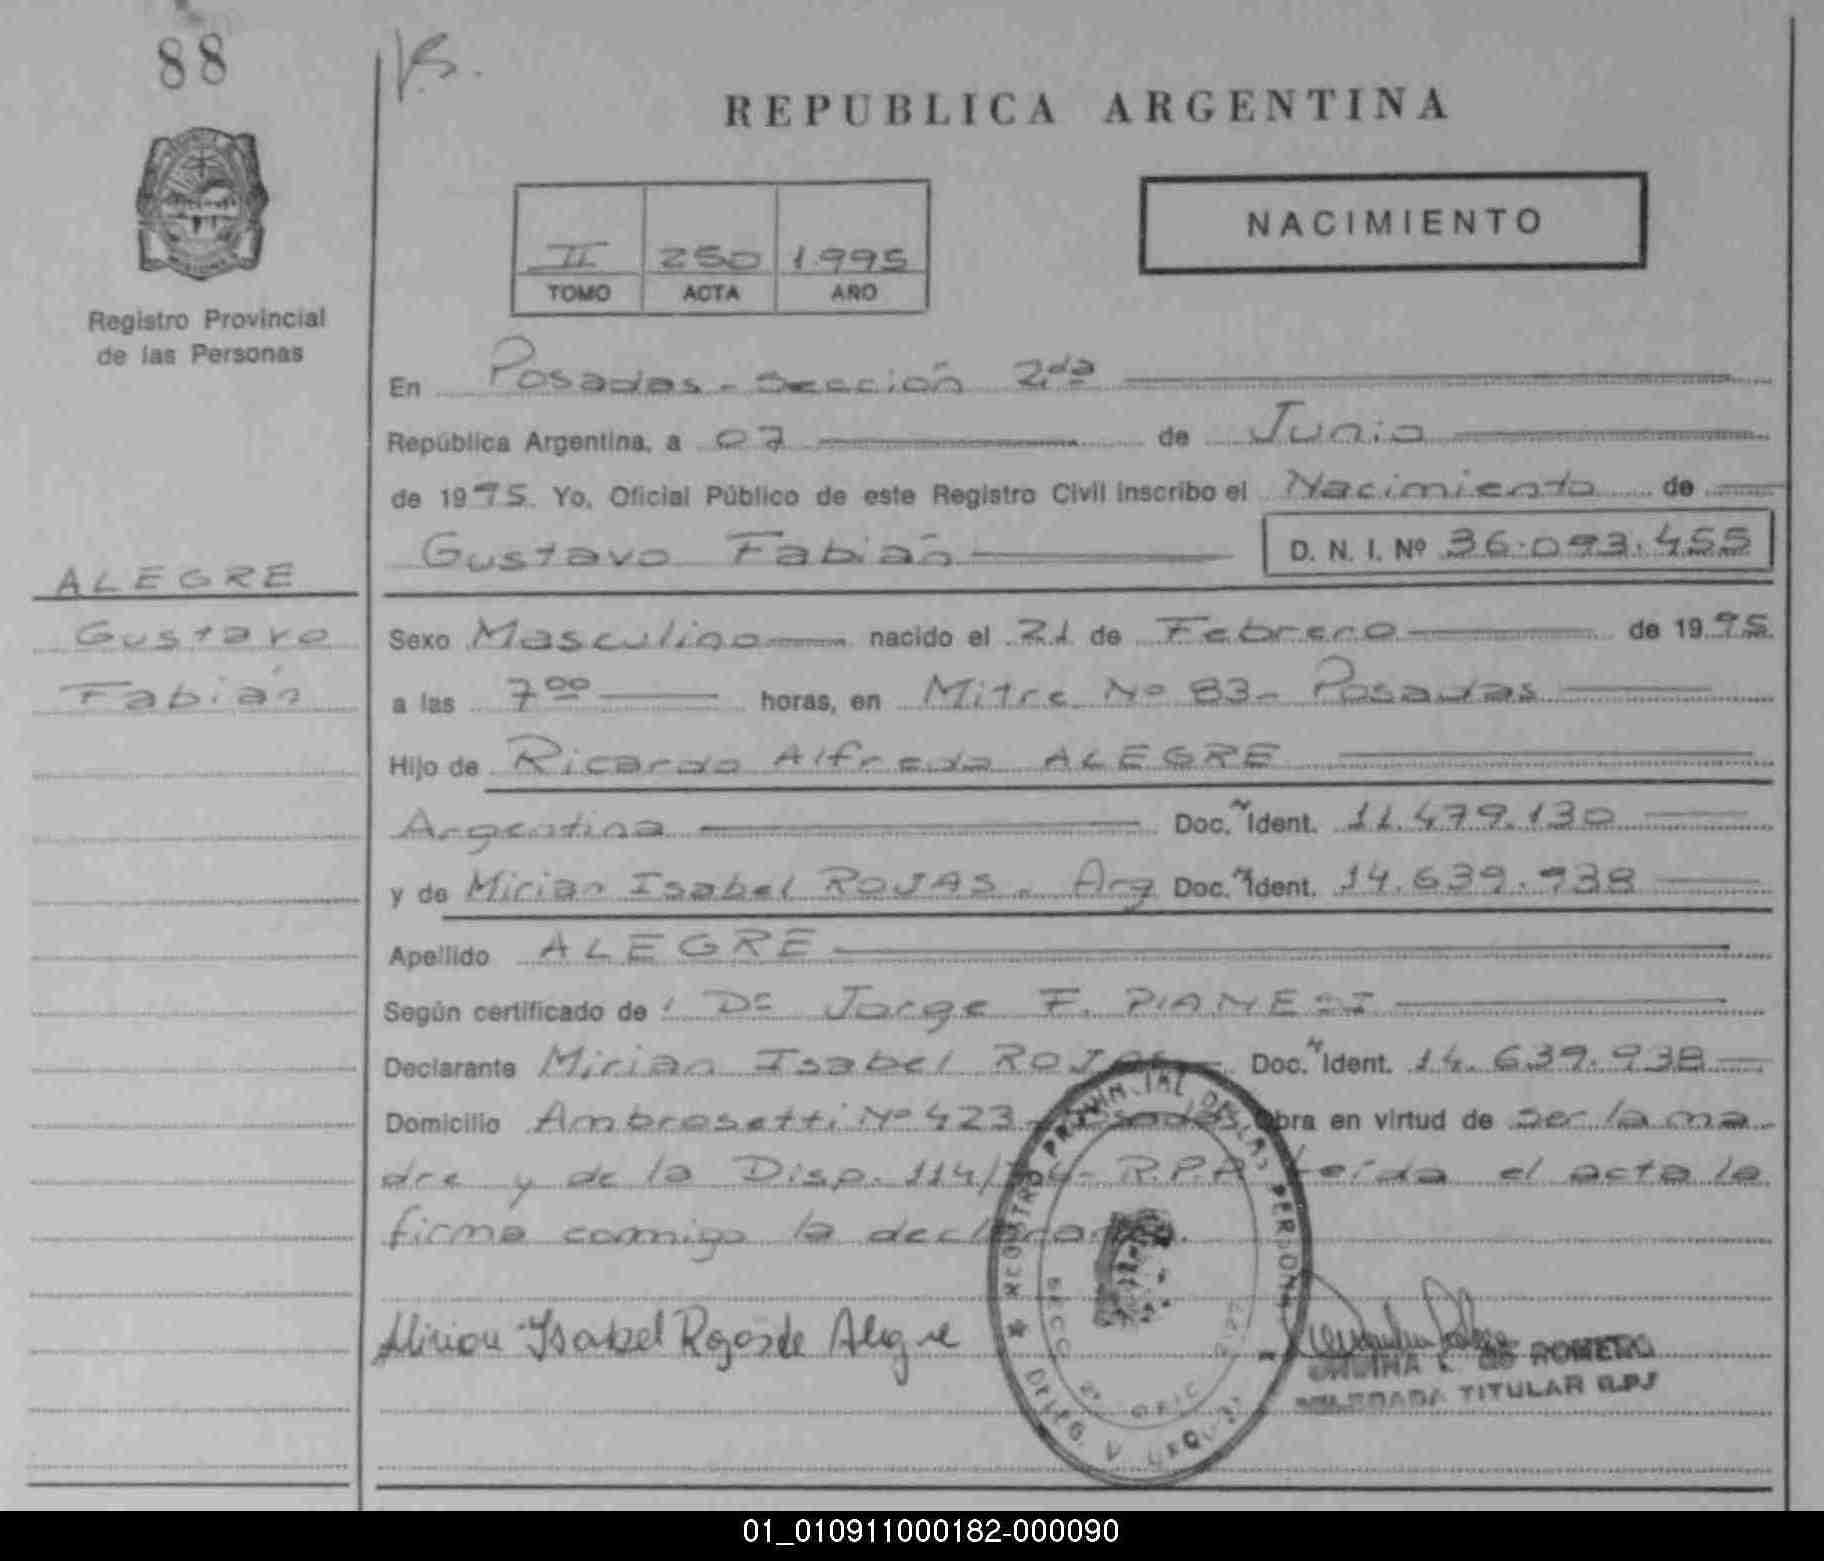 88
REPUBLICA ARGENTINA
NACIMIENTO
II 250 1.995
TOMO ACTA AÑO
Registro Provincial
de las Personas
En Posadas - Sección 2da
República Argentina, a 07 de Junio
de 1995. Yo, Oficial Público de este Registro Civil inscribo el Nacimiento de
Gustavo Fabián D. N. I. Nº 36.093.455
ALEGRE
Gustavo
Fabián
Sexo Masculino nacido el 21 de Febrero de 1995.
a las 7 00 horas, en Mitre Nº 83 - Posadas
Hijo de Ricardo Alfredo ALEGRE
Argentina Doc. Ident. 11.479.130
y de Mirian Isabel ROJAS. Arg Doc. Ident. 14.639.938
Apellido ALEGRE
Según certificado de Dr Jorge F.
Declarante Mirian Isabel ROJAS Doc. Ident. 14.639.938
Domicilio Ambrosetti Nº 423 - Posadas Obra en virtud de ser la ma-
dre y de la Disp. 114/ - R.P.P. Leída el acta la
firma conmigo la declarante.
Mirian Isabel Rojas de Alegre
REGISTRO PROVINCIAL DE LAS PERSONAS
DE ROMERO
DELEGADA TITULAR R.P.
01_010911000182-000090